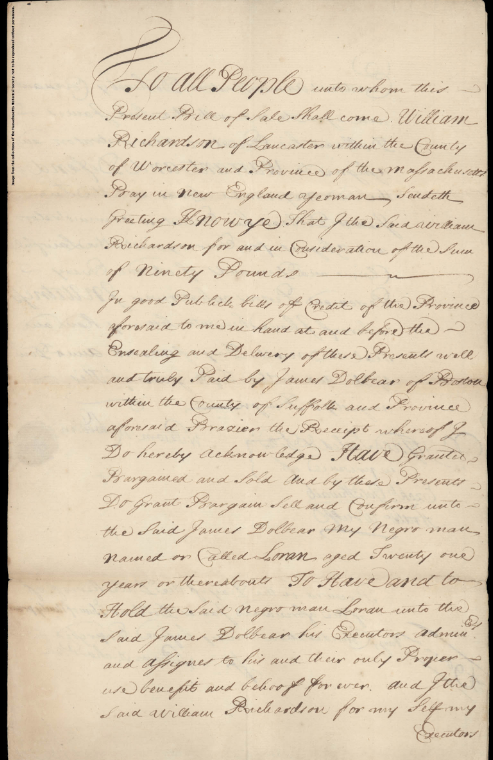 To all People unto whom this
Present Bill of Sale Shall come William
Richardson of Lancaster within the County
of Worcester and Province of the Massachusetts
Bay in New England yeoman Sendeth
Greeting Know ye That I the Said William
Richardson for and in Consideration of the Sum
of Ninety Pounds
In good Publick bills of Credit of the Province
aforesaid to me in hand at and before the
Ensealing and Delivery of these Presents well
and truly Paid by James Dolbear of Boston
within the County of Suffolk and Province
aforesaid Brazier the Receipt whereof I
Do hereby acknowledge Have Granted
Bargained and Sold And by these Presents
Do Grant Bargain Sell and Confirm unto
the Said James Dolbear My Negro man
Named or Called Loran aged Twenty one
years or thereabouts To Have and to
Hold the Said Negro man Loran unto the
Said James Dolbear his Executors admin:rs
and assignes to his and their only Proper
use benefit and behoof for ever. and I the
Said William Richardson for my Self my
Executors